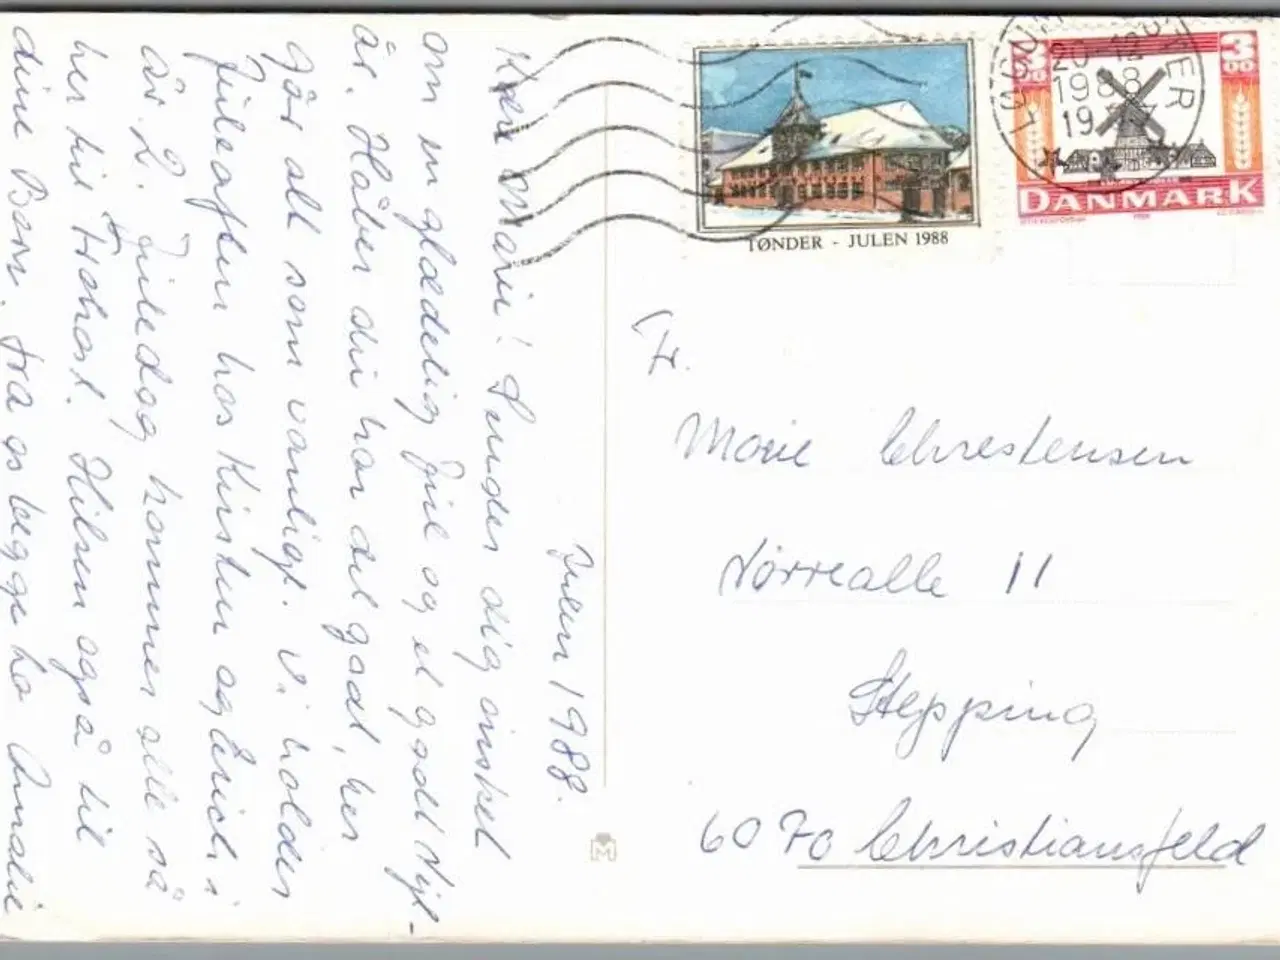 Julen 1988.
Kære Marie! Sender dig ønsket
om en glædelig Jul og et godt Nyt-
år. Håber du har det godt, her
går alt som vanligt. Vi holder
Juleaften hos Kirsten og Erich i
år. 2. Juledag kommer alle så
her til Frokost. Hilsen også til
dine Børn. Fra os begge to
TØNDER - JULEN 1988
3 00
3 00
DANMARK
20 12
1988
19
Fr.
Marie Chrestensen
Nørrealle 11
Stepping
6070 Christiansfeld
M